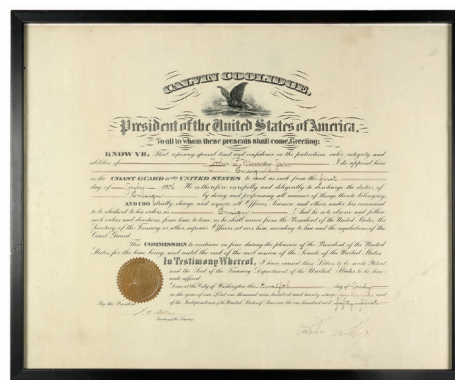 CALVIN COOLIDGE,
President of the United States of America.
To all to whom these presents shall come, Greeting:
KNOW YE, That reposing special trust and confidence in the patriotism, valor, integrity and
abilities of John I do appoint him
Ensign
in the COAST GUARD of the UNITED STATES to rank as such from the first
day of 1926. He is therefore carefully and diligently to discharge the duties of
Ensign by doing and performing all manner of things thereto belonging,
AND I DO strictly charge and require all Officers, Seamen and others under his command
to be obedient to his orders as Ensign And he is to observe and follow
such orders and directions, from time to time, as he shall receive from the President of the United States, the
Secretary of the Treasury or other superior Officers set over him, according to law and the regulations of the
Coast Guard.
This COMMISSION to continue in force during the pleasure of the President of the United
States for the time being, and until the end of the next session of the Senate of the United States.
In Testimony Whereof, I have caused these Letters to be made Patent
and the Seal of the Treasury Department of the United States to be here-
unto affixed.
Done at the City of Washington this twelfth day of
in the year of our Lord one thousand nine hundred and twenty and
of the Independence of the United States of America the one hundred and fifty-first
By the President
Secretary of the Treasury